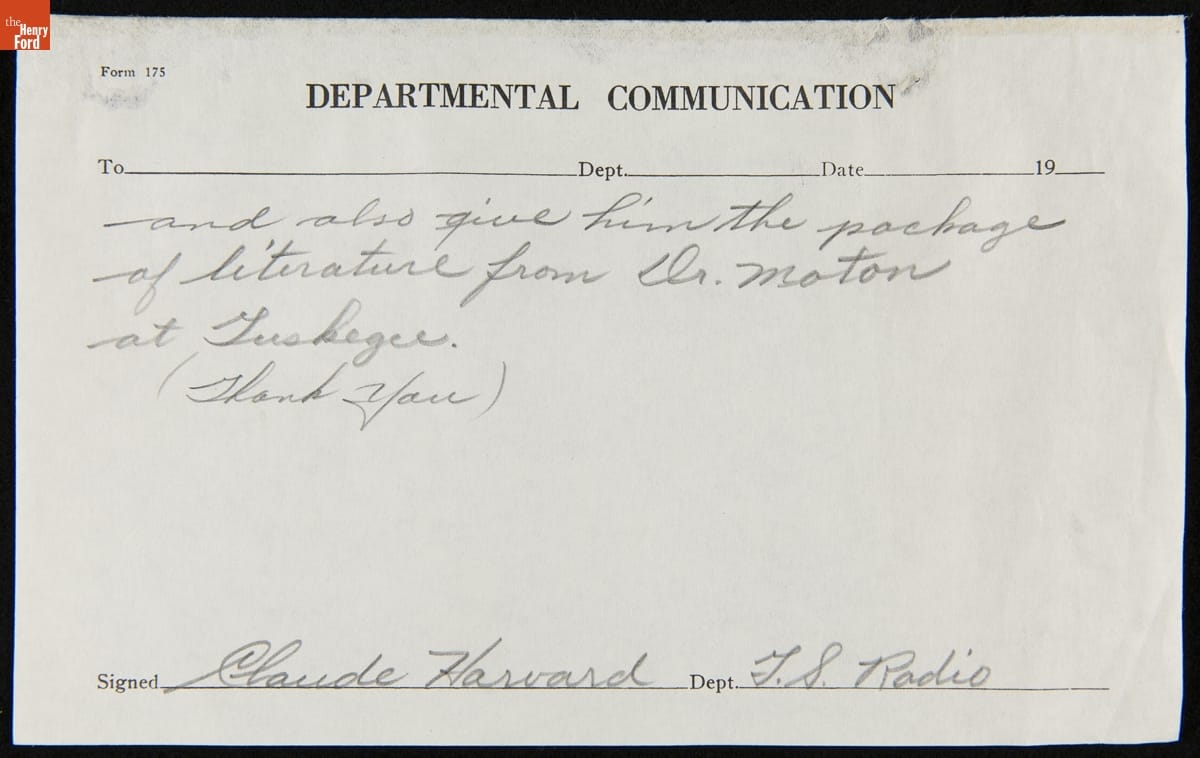 the Henry Ford
Form 175
DEPARTMENTAL COMMUNICATION
To Dept. Date 19
and also give him the package
of literature from Dr. Moton
at Tuskegee.
(Thank You)
Signed Claude Harvard Dept. T.S. Radio